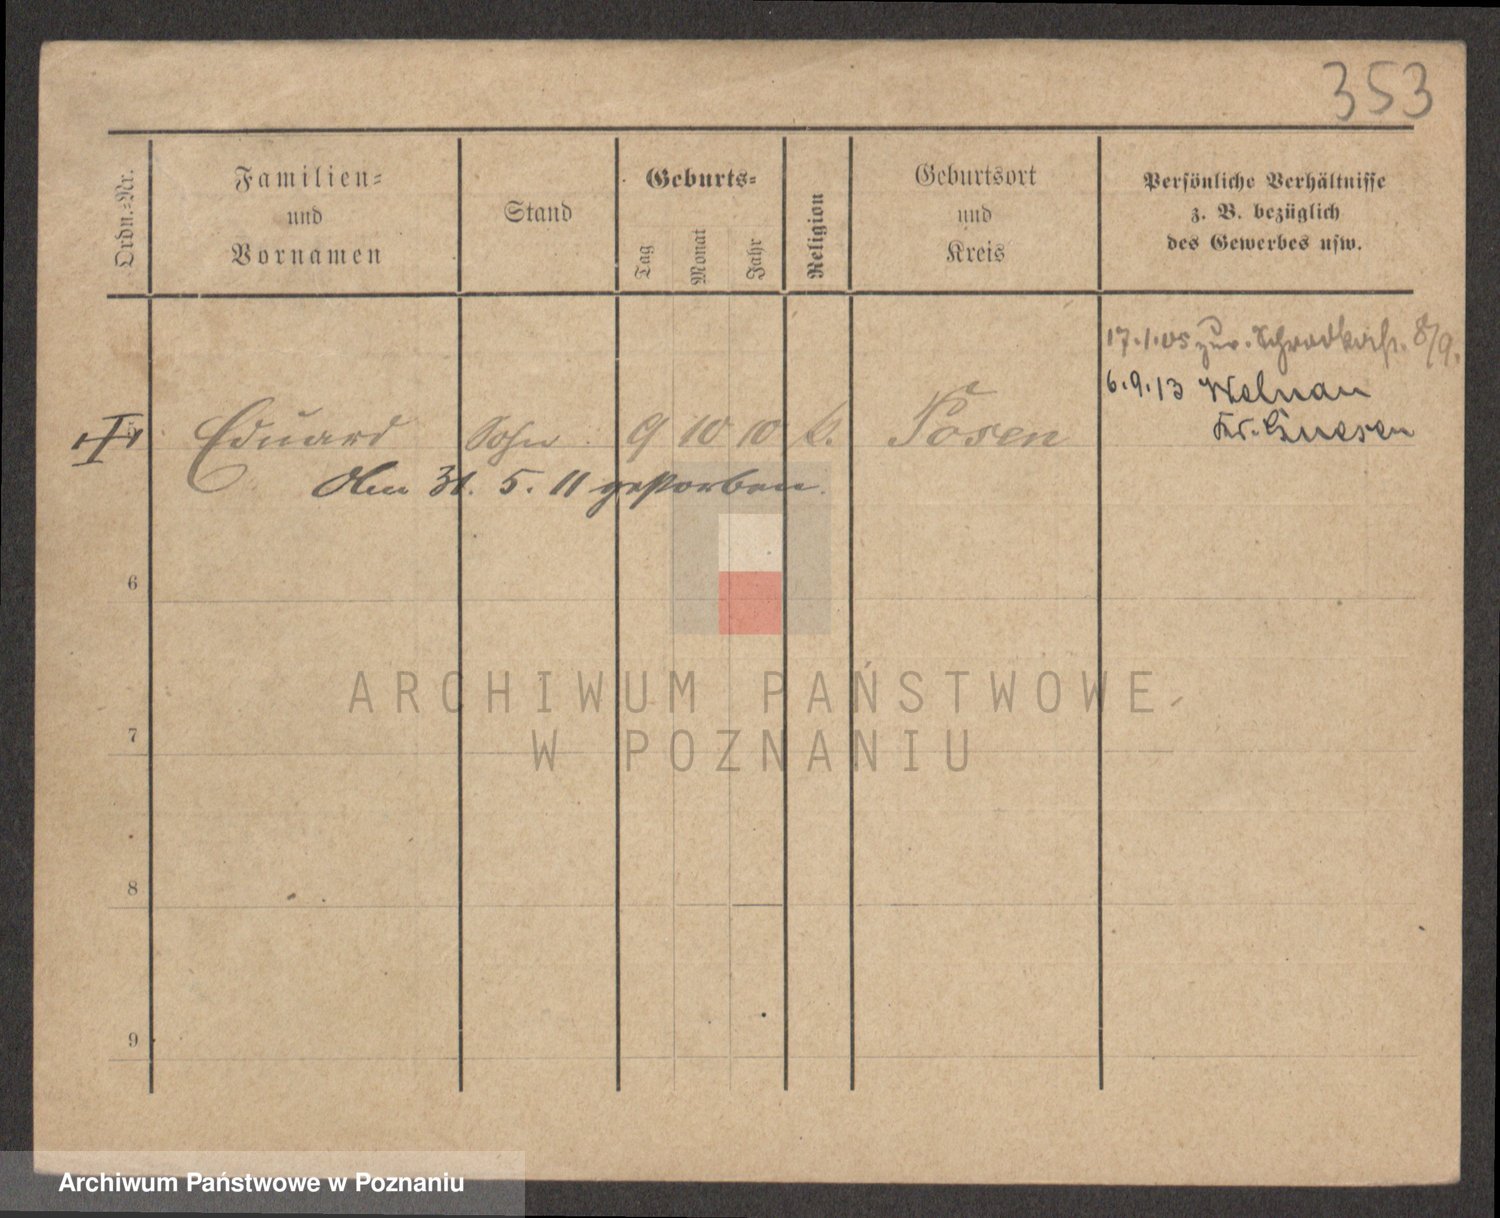 353
Ordn.-Nr.
Familien-
und
Vornamen
Stand
Geburts-
Tag
Monat
Jahr
Religion
Geburtsort
und
Kreis
Persönliche Verhältnisse
z. B. bezüglich
des Gewerbes usw.
17.1.05 zur. 8/9.
6.9.13 Welnau
Kr. Gnesen
5 Eduard Sohn 9 10 10 k. Posen
Am 31. 5. 11 gestorben.
6
7
8
9
ARCHIWUM PAŃSTWOWE
W POZNANIU
Archiwum Państwowe w Poznaniu